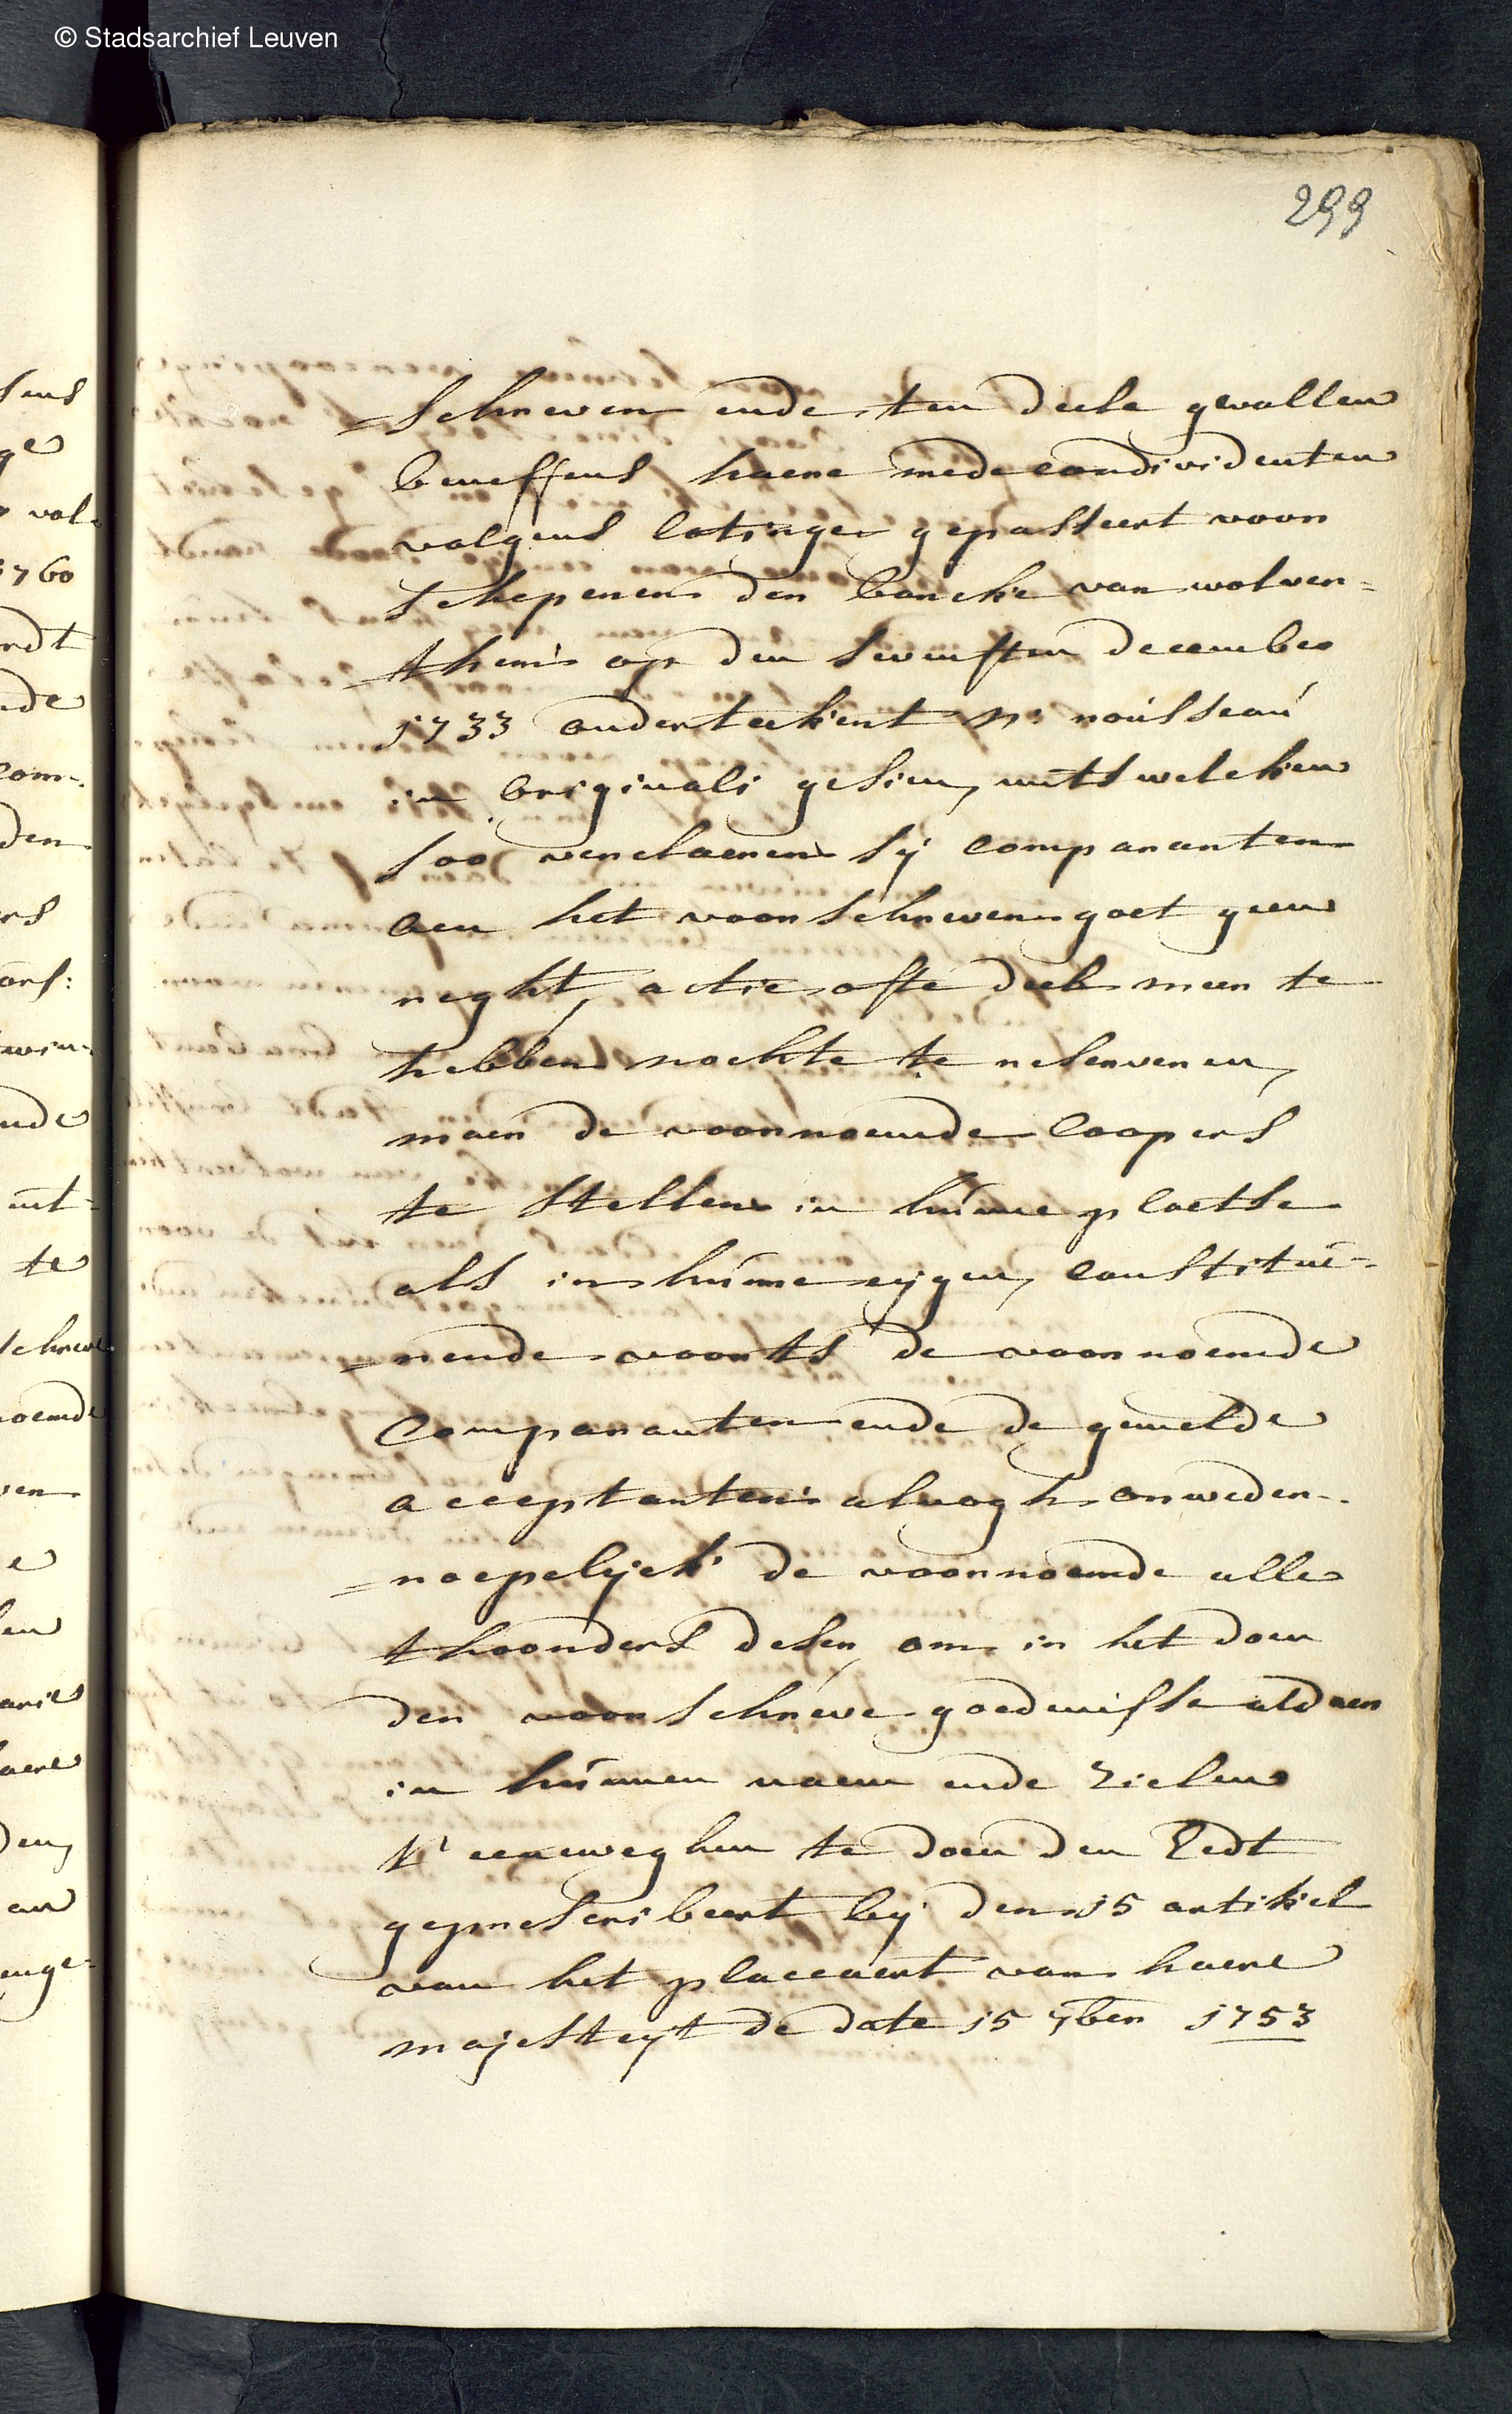 © Stadsarchief Leuven
299
=schreven ende ten deele gevallen
beneffens haere mede condividenten
volgens lotinge gepasseert voor
schepenen der bancke van wolver=
=them op den sevensten december
1733 onderteekent N: rousseau
in originali gesien, mits welcken
soo verclaeren sij comparanten
aen het voorschreven goet geen
reght, actie ofte deel meer te
hebben nochte te reserveren,
maer de voornoemde coopers
te stellen in hunne plaetse
als in hunne eygen, constitue=
=rende voorts de voornoemde
comparanten ende de gemelde
acceptanten alnogh onweder=
=roepelyck de voornoemde alle
thoonders deser, om in het doen
der voorschreve goedenisse aldaer
in hunnen naem ende zielen
t' eenweghen te doen den Eedt
geprescribeert bij den 15 artikel
van het placcaert van haere
majesteyt de date 15 7ber 1753